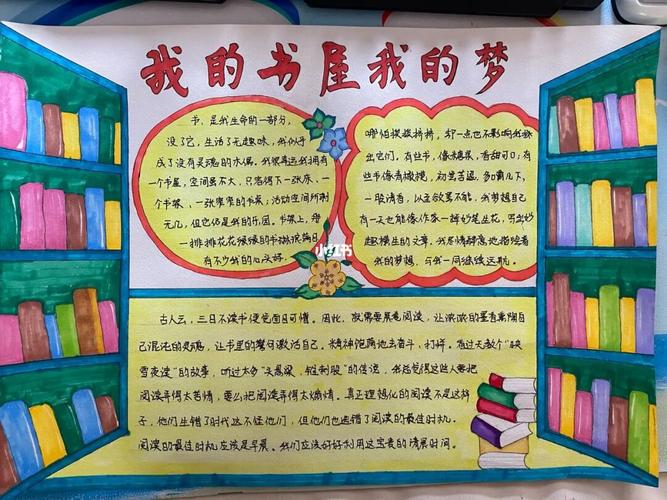 我的书屋我的梦
书，是我生命的一部分，
没了它，生活了无趣味，我似乎
成了没有灵魂的木偶。我很早就拥有
一个书屋，空间虽不大，只容得下一张床、一
个书桌、一张窄窄的书架；活动空间所剩
无几，但它仍是我的乐园。书架上，
一排排花花绿绿的书
有不少我的心头好。
哪怕挨挨挤挤，一点也不影响我
出它们，有些书，像糖果，香甜可口；有
些书像青橄榄，初觉苦涩，多嚼几下，
一股清香，以至欲罢不能。我梦想自己
有一天也能像作家一样妙笔生花，写出妙
趣横生的文章，我尽情肆意地描绘着
我的梦想，与书一同继续远航。
小红书
古人云，三日不读书便觉面目可憎。因此，就需要晨起阅读，让浓浓的墨香熏陶自
己混沌的灵魂，让书里的警句激活自己，精神饱满地去奋斗、打拼。有过太多"映
雪夜读"的故事，听过太多"头悬梁，锥刺股"的传说，我总觉得这些人要把
阅读弄得太苦情，要么把阅读弄得太煽情。真正理想化的阅读不是这样
子，他们生错了时代这不怪他们，但他们也选错了阅读的最佳时机。
阅读的最佳时机应该是早晨。我们应该好好利用这宝贵的清晨时间。